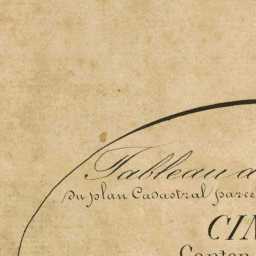 Tableau d
du plan Cadastral parce
CIN
Canton